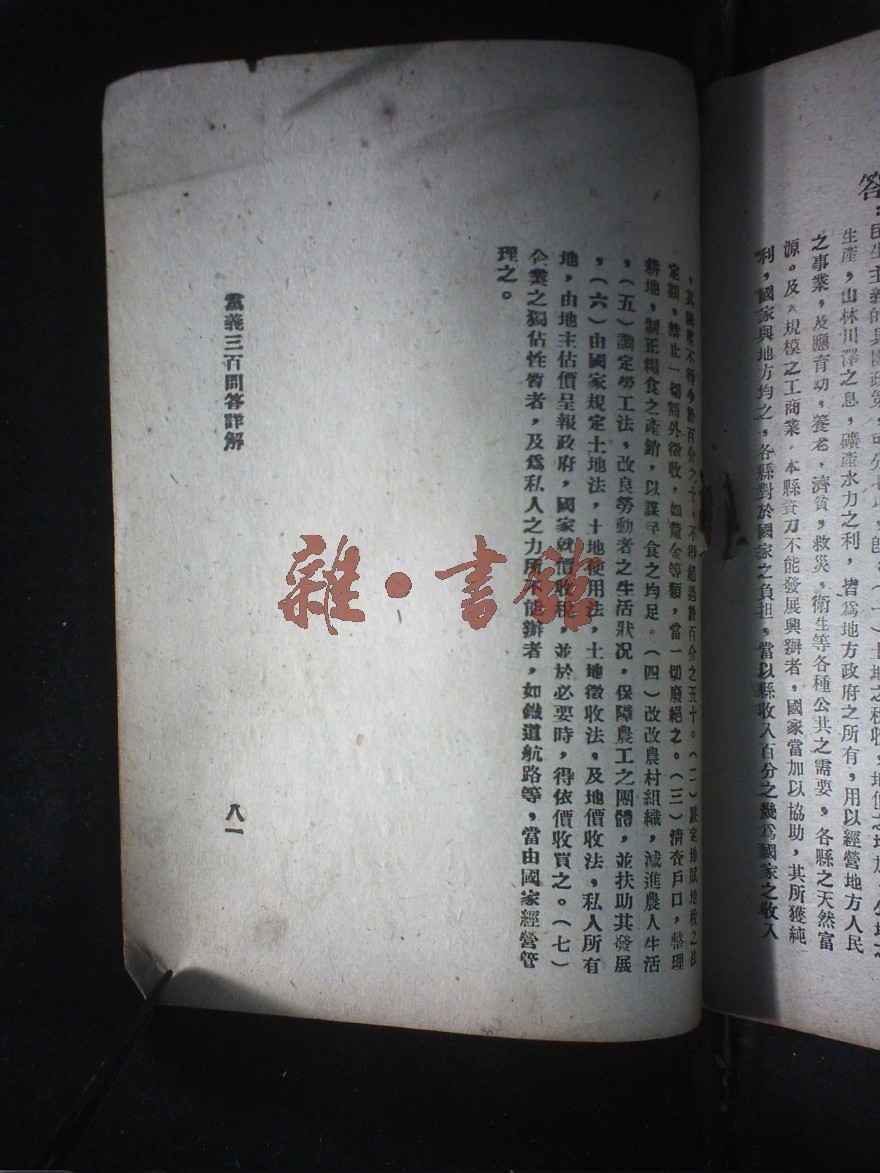 答：民生主義的具體政策，可分七項，即：（一）土地之稅收，地價之增加，公地之
生產，山林川澤之息，礦產水力之利，皆為地方政府之所有，用以經營地方人民
之事業，及應育幼，養老，濟貧，救災，衛生等各種公共之需要，各縣之天然富
源。及大規模之工商業，本縣資力不能發展興辦者，國家當加以協助，其所獲純
利，國家與地方均之，各縣對於國家之負担，當以縣收入百分之幾為國家之收入
，其限度不得少於百分之十，不得超過於百分之五十。（二）釐定地賦地稅之法
定額，禁止一切額外徵收，如釐金等類，當一切廢絕之。（三）清查戶口，整理
耕地，制正糧食之產銷，以謀民食之均足。（四）改改農村組織，減進農人生活
，（五）制定勞工法，改良勞動者之生活狀況，保障農工之團體，並扶助其發展
，（六）由國家規定土地法，土地使用法，土地徵收法，及地價收法，私人所有
地，由地主估價呈報政府，國家就價收稅，並於必要時，得依價收買之。（七）
企業之獨佔性質者，及為私人之力所不能辦者，如鐵道航路等，當由國家經營管
理之。
黨義三百問答詳解
八一
雜·書館